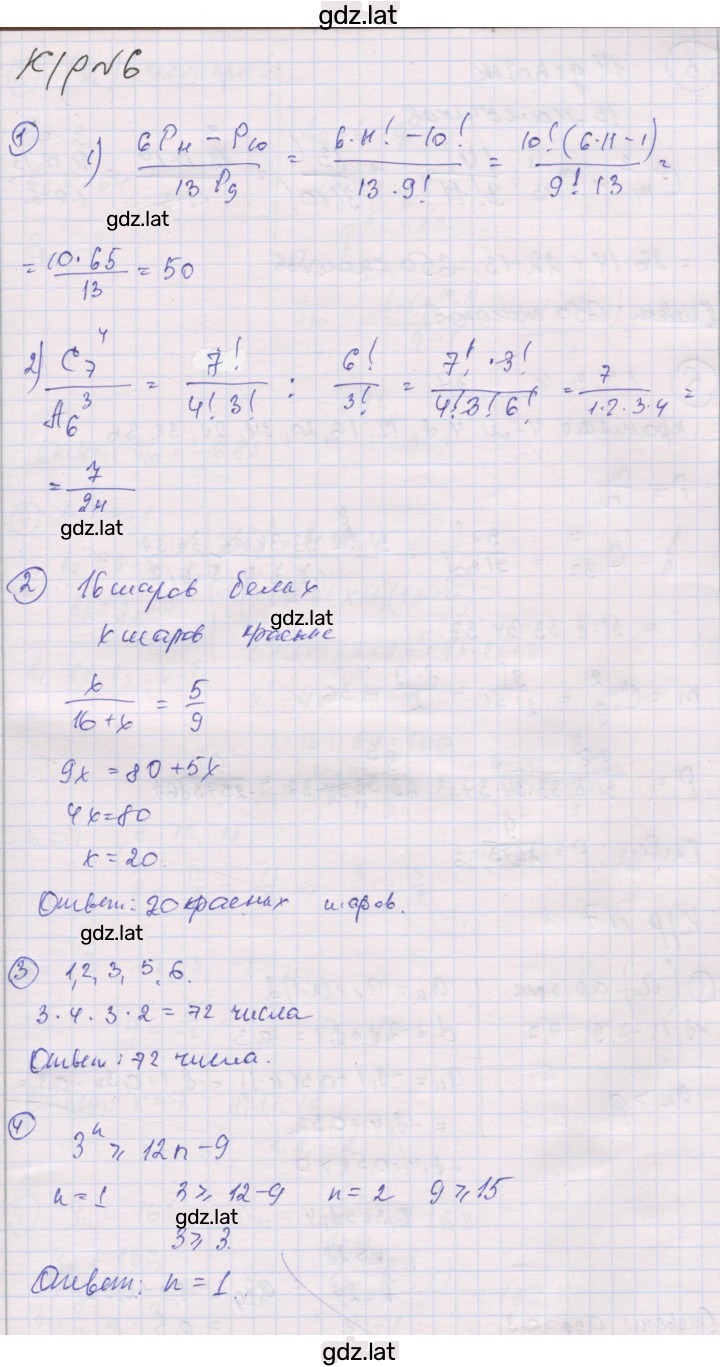 gdz.lat
К/Р №6
① 1) (6P₁₁ − P₁₀)/(13 P₉) = (6·11! − 10!)/(13·9!) = 10!(6·11−1)/(9!·13) =
gdz.lat
= 10·65/13 = 50
2) C₇⁴/A₆³ = 7!/(4!3!) : 6!/3! = 7!·3!/(4!3!6!) = 7/(1·2·3·4) =
= 7/24
gdz.lat
② 16 шаров белых
gdz.lat
x шаров красные
x/(16+x) = 5/9
9x = 80+5x
4x=80
x=20.
Ответ: 20 красных шаров.
gdz.lat
③ 1,2, 3, 5, 6.
3·4·3·2 = 72 числа
Ответ: 72 числа.
④ 3ⁿ ⩾ 12n−9
n=1 3⩾12−9 n=2 9⩾15
gdz.lat
3⩾3.
Ответ: n=1.
gdz.lat